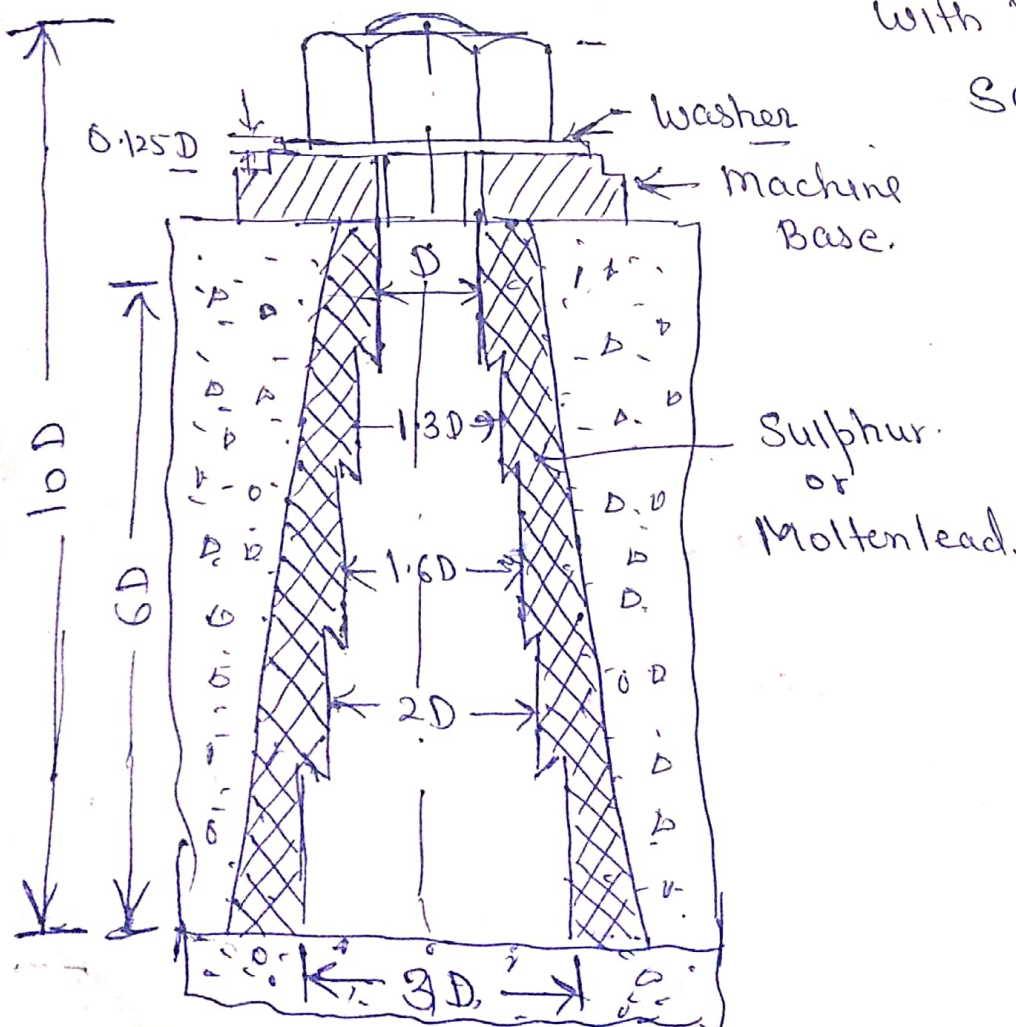 with
0.125D
washer
Machine
Base.
D
10D
6D
1.3D
Sulphur.
or
Moltenlead.
1.6D
2D
3D